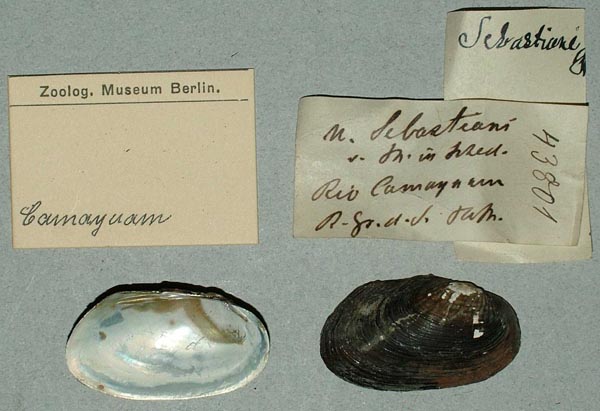 Zoolog. Museum Berlin.
Camayuam
Sebastiani
n. Sebastiani
v. M. in sched.
Rio Camaynam
R. Gr. d. S.
43801